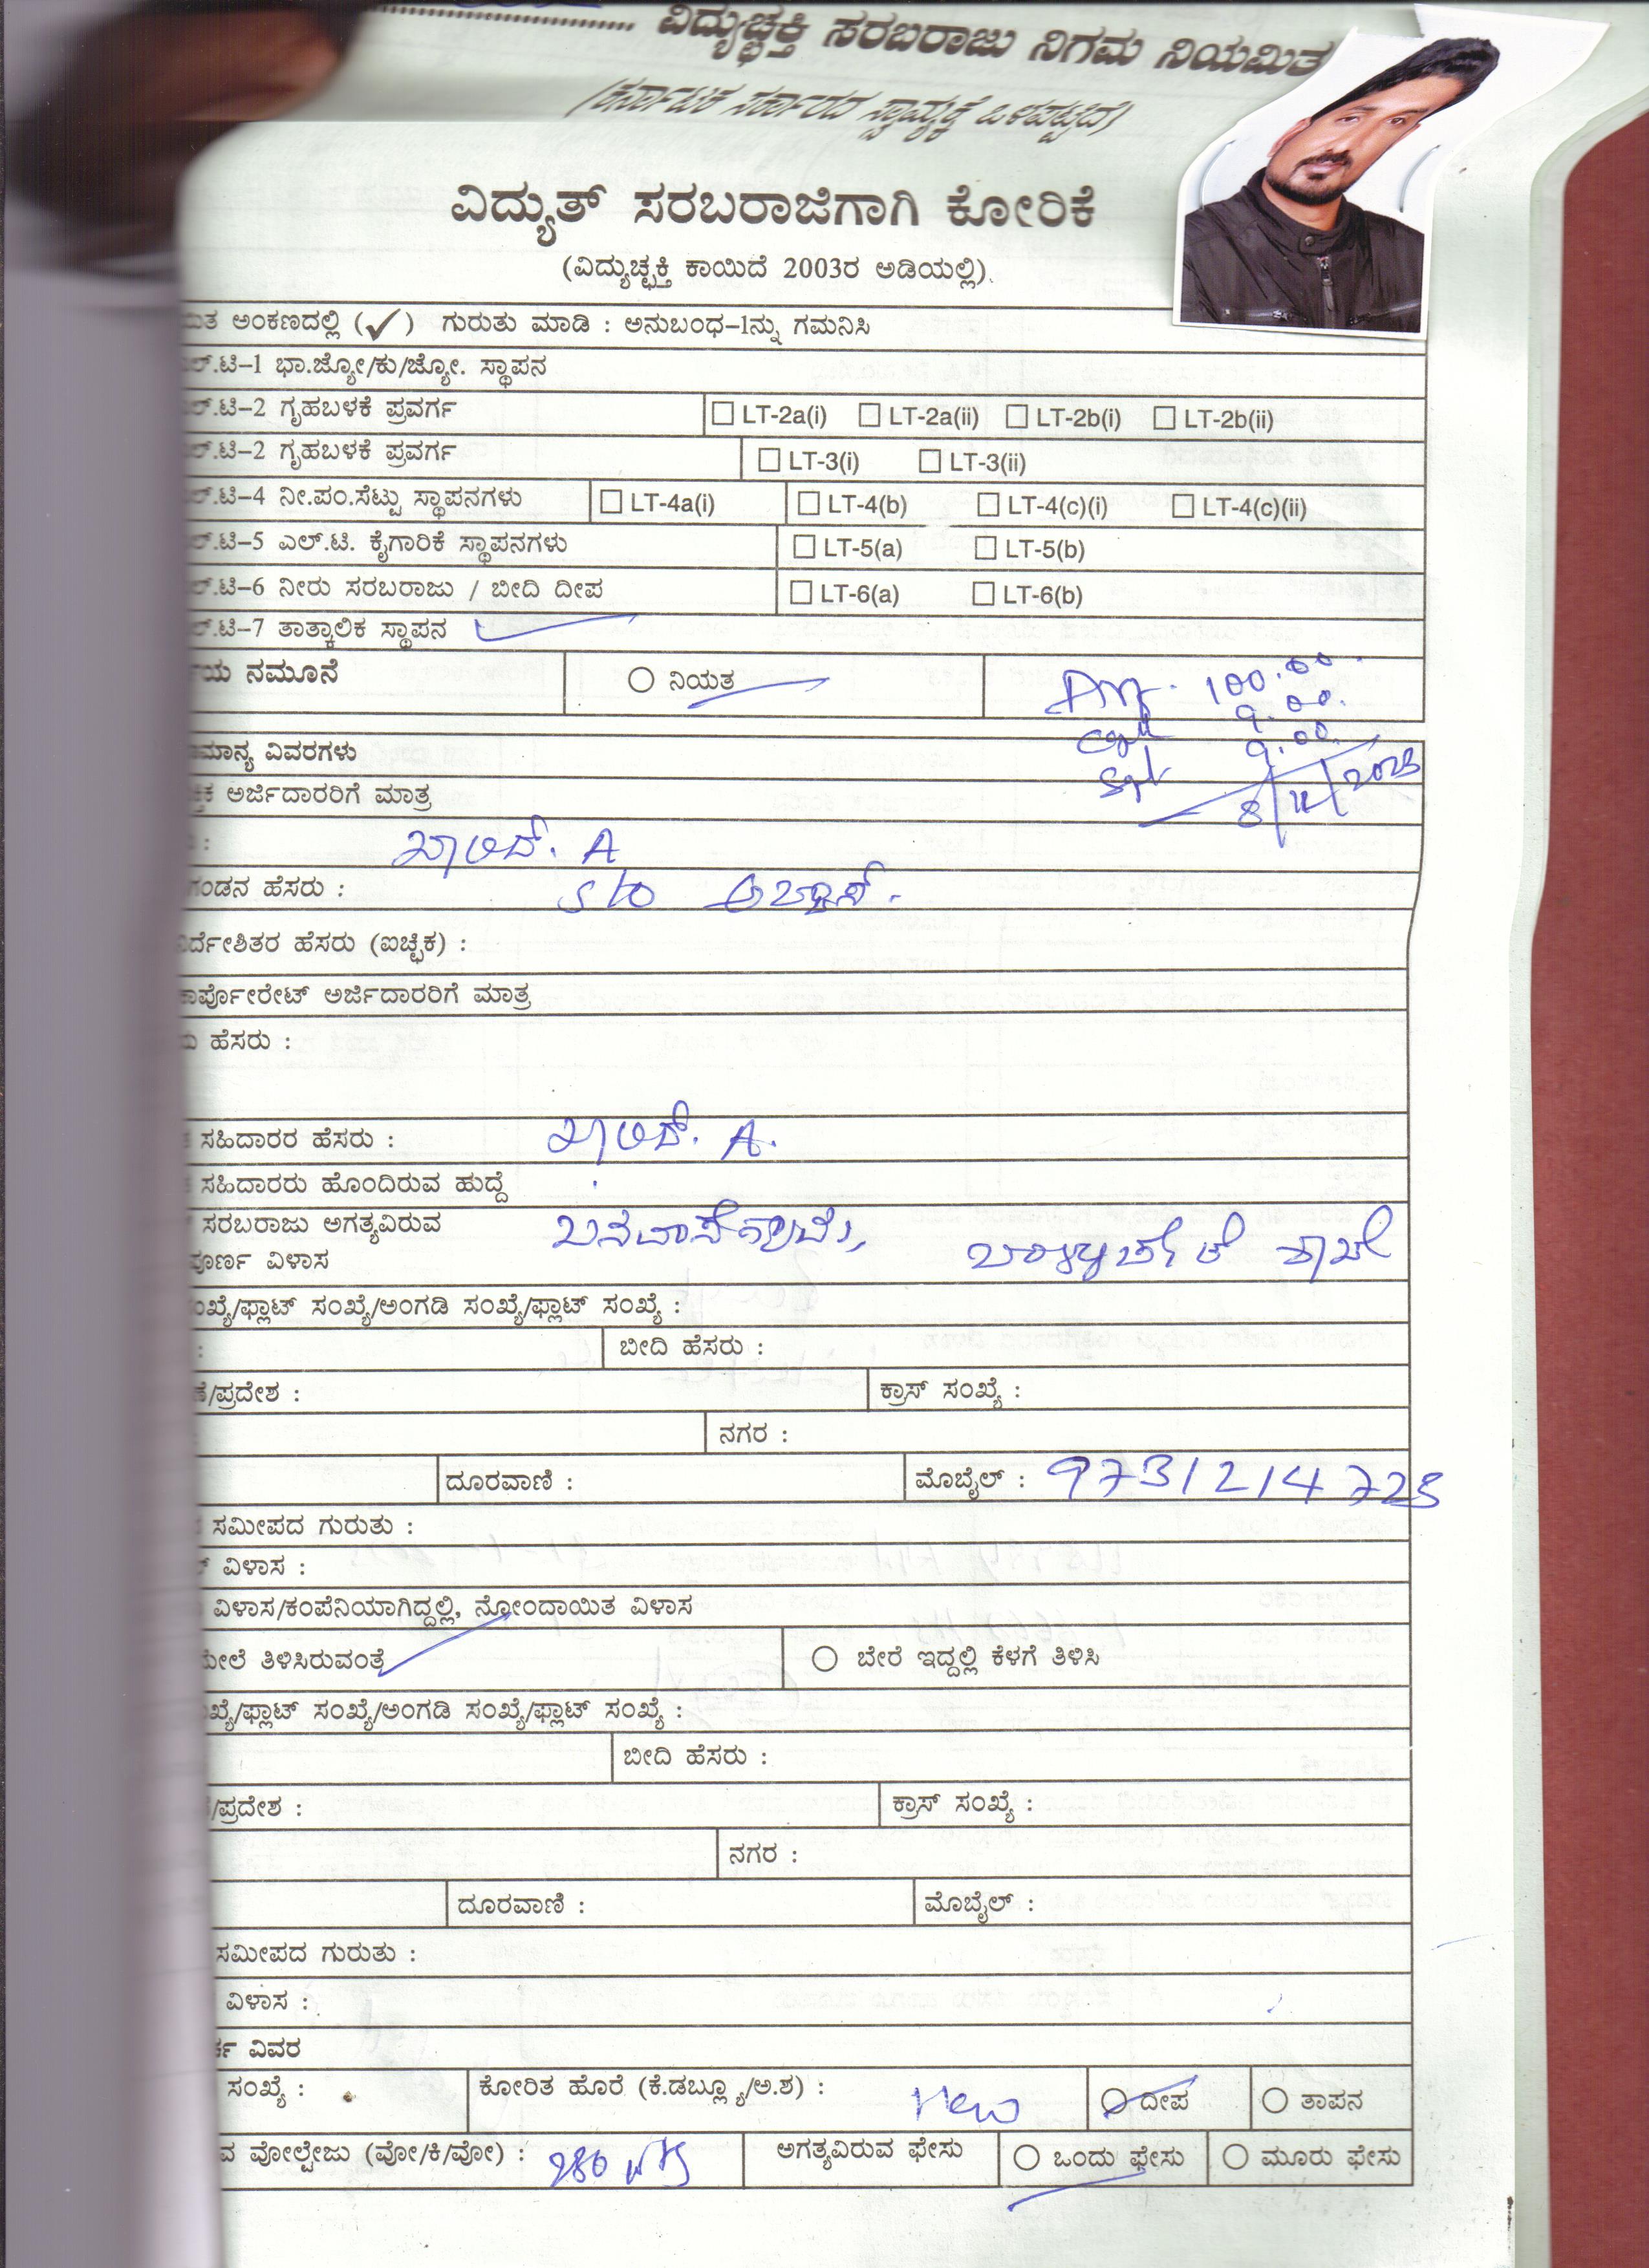 ವಿದ್ಯುಚ್ಛಕ್ತಿ ಸರಬರಾಜು ನಿಗಮ ನಿಯಮಿತ
(ಕರ್ನಾಟಕ ಸರ್ಕಾರದ ಸ್ವಾಮ್ಯಕ್ಕೆ ಒಳಪಟ್ಟಿದೆ)
ವಿದ್ಯುತ್ ಸರಬರಾಜಿಗಾಗಿ ಕೋರಿಕೆ
(ವಿದ್ಯುಚ್ಛಕ್ತಿ ಕಾಯಿದೆ 2003ರ ಅಡಿಯಲ್ಲಿ)
ಅಂಕಣದಲ್ಲಿ (✓) ಗುರುತು ಮಾಡಿ : ಅನುಬಂಧ-1ನ್ನು ಗಮನಿಸಿ
ಲ್.ಟಿ-1 ಭಾ.ಜ್ಯೋ/ಕು/ಜ್ಯೋ. ಸ್ಥಾಪನ
ಲ್.ಟಿ-2 ಗೃಹಬಳಕೆ ಪ್ರವರ್ಗ LT-2a(i) LT-2a(ii) LT-2b(i) LT-2b(ii)
ಲ್.ಟಿ-2 ಗೃಹಬಳಕೆ ಪ್ರವರ್ಗ LT-3(i) LT-3(ii)
ಲ್.ಟಿ-4 ನೀ.ಪಂ.ಸೆಟ್ಟು ಸ್ಥಾಪನಗಳು LT-4a(i) LT-4(b) LT-4(c)(i) LT-4(c)(ii)
ಲ್.ಟಿ-5 ಎಲ್.ಟಿ. ಕೈಗಾರಿಕೆ ಸ್ಥಾಪನಗಳು LT-5(a) LT-5(b)
ಲ್.ಟಿ-6 ನೀರು ಸರಬರಾಜು / ಬೀದಿ ದೀಪ LT-6(a) LT-6(b)
ಲ್.ಟಿ-7 ತಾತ್ಕಾಲಿಕ ಸ್ಥಾಪನ
ಯ ನಮೂನೆ ನಿಯತ 100.00
9.00.
ಮಾನ್ಯ ವಿವರಗಳು 9.00
ಅರ್ಜಿದಾರರಿಗೆ ಮಾತ್ರ 8/11/2023
: A
ಗಂಡನ ಹೆಸರು : S/o
ರ್ದೇಶಿತರ ಹೆಸರು (ಐಚ್ಛಿಕ) :
ಕಾರ್ಪೋರೇಟ್ ಅರ್ಜಿದಾರರಿಗೆ ಮಾತ್ರ
ಹೆಸರು :
ಸಹಿದಾರರ ಹೆಸರು : A.
ಸಹಿದಾರರು ಹೊಂದಿರುವ ಹುದ್ದೆ
ಸರಬರಾಜು ಅಗತ್ಯವಿರುವ
ಪೂರ್ಣ ವಿಳಾಸ
ಸಂಖ್ಯೆ/ಫ್ಲಾಟ್ ಸಂಖ್ಯೆ/ಅಂಗಡಿ ಸಂಖ್ಯೆ/ಫ್ಲಾಟ್ ಸಂಖ್ಯೆ :
: ಬೀದಿ ಹೆಸರು :
/ಪ್ರದೇಶ : ಕ್ರಾಸ್ ಸಂಖ್ಯೆ :
ನಗರ :
ದೂರವಾಣಿ : ಮೊಬೈಲ್ : 9731214725
ಸಮೀಪದ ಗುರುತು :
ವಿಳಾಸ :
ವಿಳಾಸ/ಕಂಪೆನಿಯಾಗಿದ್ದಲ್ಲಿ, ನೋಂದಾಯಿತ ವಿಳಾಸ
ಮೇಲೆ ತಿಳಿಸಿರುವಂತೆ ಬೇರೆ ಇದ್ದಲ್ಲಿ ಕೆಳಗೆ ತಿಳಿಸಿ
ಖ್ಯೆ/ಫ್ಲಾಟ್ ಸಂಖ್ಯೆ/ಅಂಗಡಿ ಸಂಖ್ಯೆ/ಫ್ಲಾಟ್ ಸಂಖ್ಯೆ :
ಬೀದಿ ಹೆಸರು :
/ಪ್ರದೇಶ : ಕ್ರಾಸ್ ಸಂಖ್ಯೆ :
ನಗರ :
ದೂರವಾಣಿ : ಮೊಬೈಲ್ :
ಸಮೀಪದ ಗುರುತು :
ವಿಳಾಸ :
ರ್ಕ ವಿವರ
ಸಂಖ್ಯೆ : ಕೋರಿತ ಹೊರೆ (ಕೆ.ಡಬ್ಲ್ಯೂ/ಅ.ಶ) : New ದೀಪ ತಾಪನ
ವ ವೋಲ್ಟೇಜು (ವೋ/ಕಿ/ವೋ) : ಅಗತ್ಯವಿರುವ ಫೇಸು ಒಂದು ಫೇಸು ಮೂರು ಫೇಸು